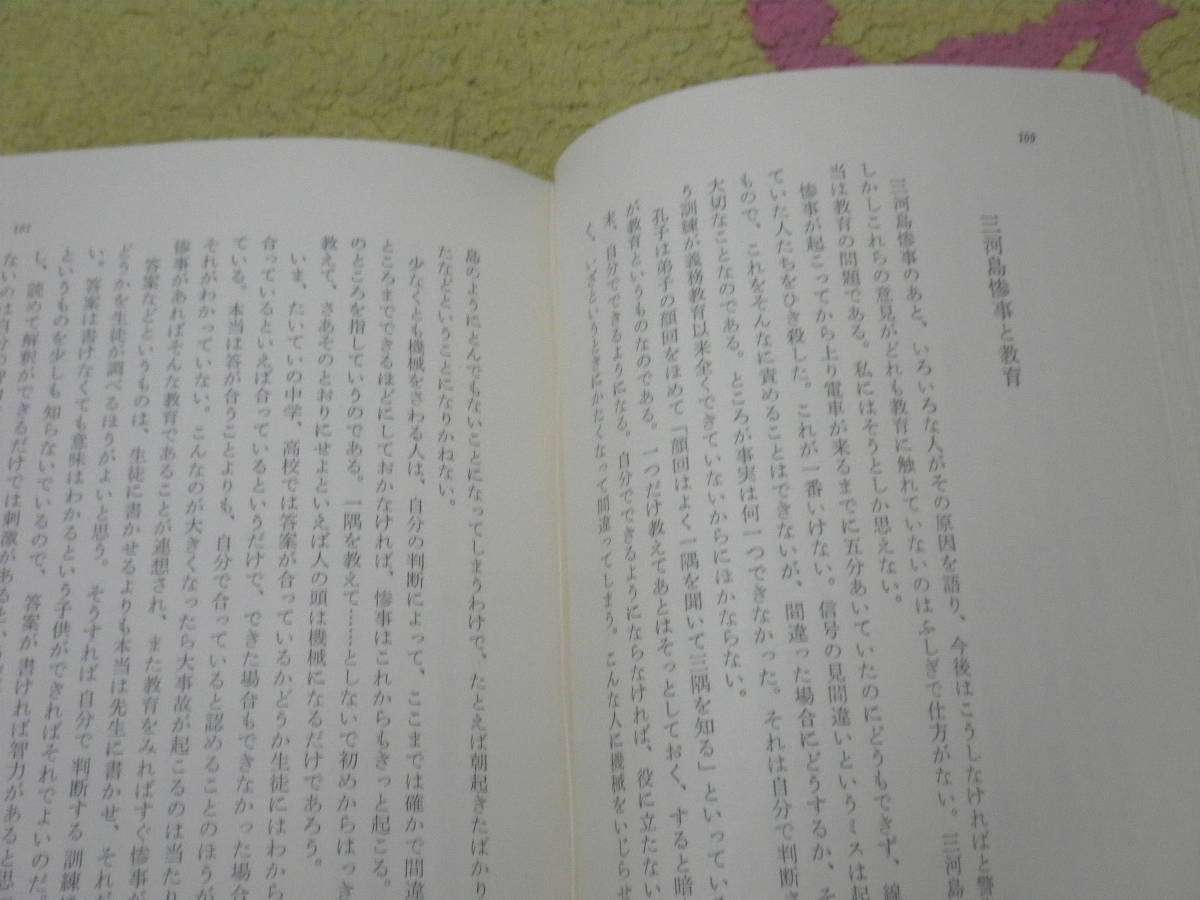 160
三河島惨事と教育
三河島惨事のあと、いろいろな人がその原因を語り、今後はこうしなければと警
しかしこれらの意見がどれも教育に触れていないのはふしぎで仕方がない。三河島
当は教育の問題である。私にはそうとしか思えない。
惨事が起こってから上り電車が来るまでに五分あいていたのにどうもできず、線
ていた人たちをひき殺した。これが一番いけない。信号の見間違いというミスは起
もので、これをそんなに責めることはできないが、間違った場合にどうするか、そ
大切なことなのである。ところが事実は何一つできなかった。それは自分で判断さ
う訓練が義務教育以来全くできていないからにほかならない。
孔子は弟子の顔回をほめて「顔回はよく一隅を聞いて三隅を知る」といっている
が教育というものなのである。一つだけ教えてあとはそっとしておく、すると暗
来、自分でできるようになる。自分でできるようにならなければ、役に立たない
く、いざというときにかたくなって間違ってしまう。こんな人に機械をいじらせ
161
島のようにとんでもないことになってしまうわけで、たとえば朝起きたばかり
たなどということになりかねない。
少なくとも機械をさわる人は、自分の判断によって、ここまでは確かで間違
ところまでできるほどにしておかなければ、惨事はこれからもきっと起こる。
のところを指していうのである。一隅を教えて……としないで初めからはっき
教えて、さあそのとおりにせよといえば人の頭は機械になるだけであろう。
いま、たいていの中学、高校では答案が合っているかどうか生徒にはわから
合っているといえば合っているというだけで、できた場合もできなかった場合
ている。本当は答が合うことよりも、自分で合っていると認めることのほうが
それがわかっていない。こんなのが大きくなったら大事故が起こるのは当たり
惨事があればそんな教育であることが連想され、また教育をみればすぐ惨事が
答案などというものは、生徒に書かせるよりも本当は先生に書かせ、それが
どうかを生徒が調べるほうがよいと思う。そうすれば自分で判断する訓練に
い。答案は書けなくても意味はわかるという子供ができればそれでよいのだ。
というものを少しも知らないでいるので、答案が書ければ智力があると思
し、読めて解釈ができるだけでは刺激があると、